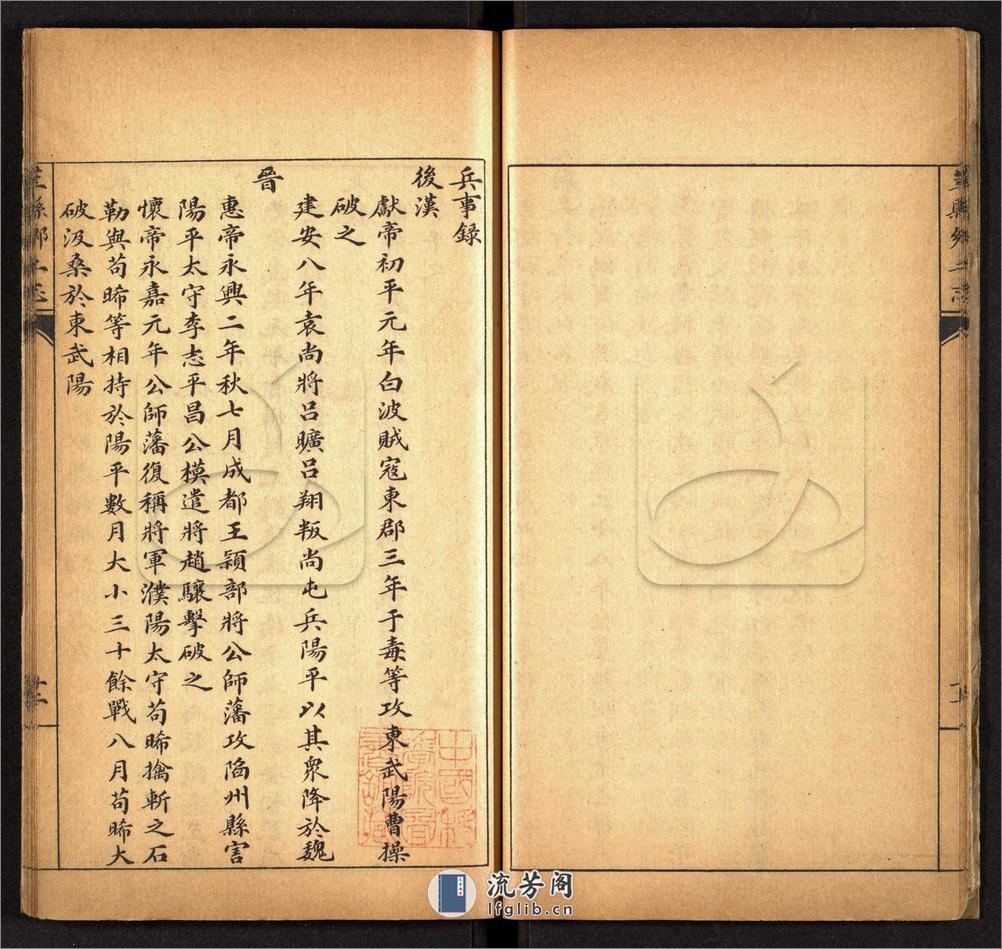 兵事録
後漢
獻帝初平元年白波賊寇東郡三年于毒等攻東武陽曹操
破之
建安八年袁尚將呂曠呂翔叛尚屯兵陽平以其衆降於魏
晉
惠帝永興二年秋七月成都王頴部將公師藩攻陷州縣害
陽平太守李志平昌公模遣將趙驤擊破之
懷帝永嘉元年公師藩復稱將軍濮陽太守苟晞擒斬之石
勒與苟晞等相持於陽平數月大小三十餘戰八月苟晞大
破汲桑於東武陽
流芳阁
lfglib.cn